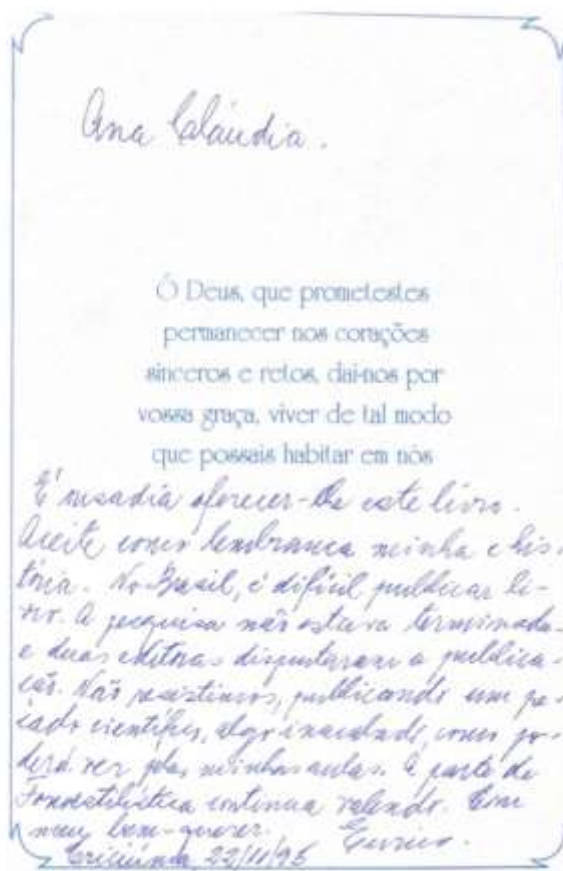 Ana Cláudia.
Ó Deus, que prometestes
permanecer nos corações
sinceros e retos, dai-nos por
vossa graça, viver de tal modo
que possais habitar em nós
É ousadia oferecer-lhe este livro.
Aceite como lembrança minha e his-
tória. No Brasil, é difícil publicar li-
vro. A pesquisa não estava terminada
e duas editoras disputaram a publica-
ção. Não resistimos, publicando um pe-
cado científico, algo inacabado, como po-
derá ver pelas minhas aulas. A parte de
Fonoestilística continua valendo. Com
meu bem-querer. Eurico.
Criciúma, 22/11/95